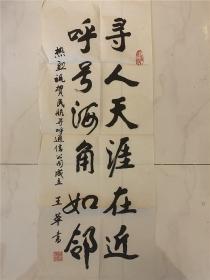 寻人天涯在近
呼号海角如邻
热烈祝贺民航寻呼通信公司成立 王华书